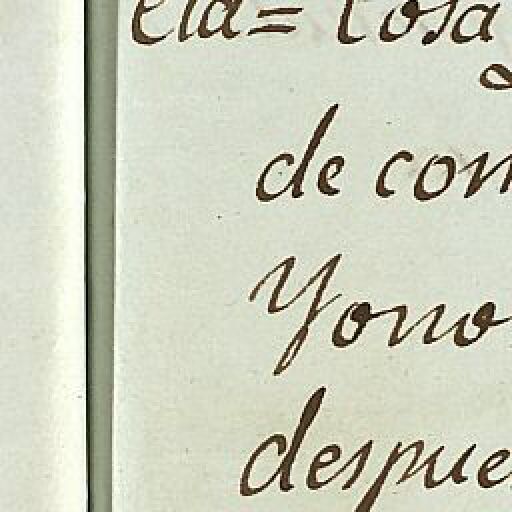 cia= Cosa
de con
Yono
despue